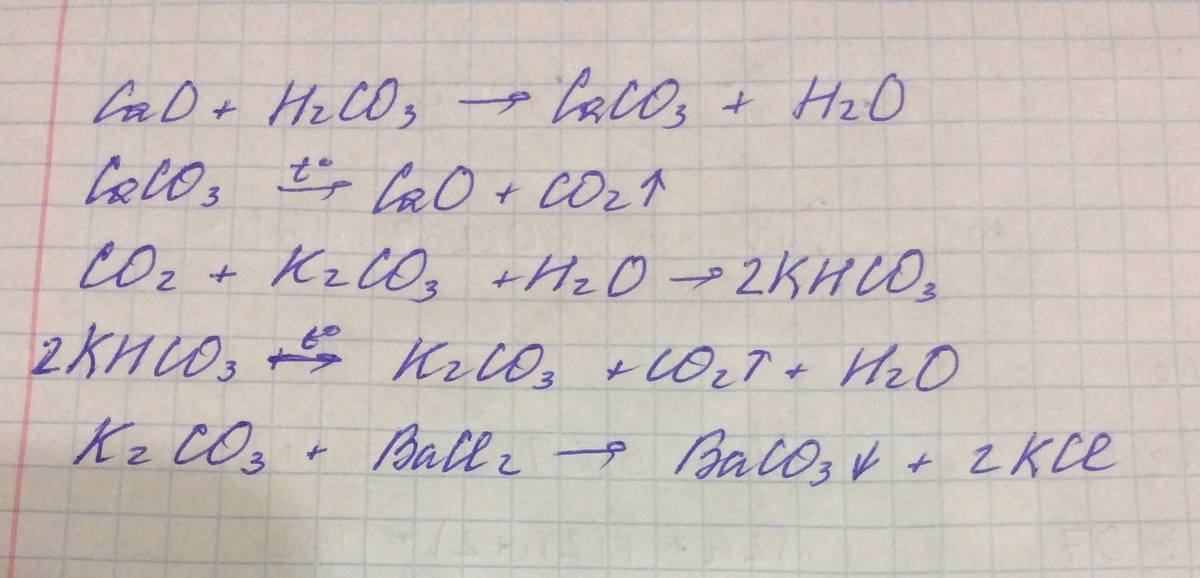 CaO + H₂CO₃ → CaCO₃ + H₂O
CaCO₃ t°→ CaO + CO₂↑
CO₂ + K₂CO₃ + H₂O → 2KHCO₃
2KHCO₃ t°→ K₂CO₃ + CO₂↑ + H₂O
K₂CO₃ + BaCl₂ → BaCO₃↓ + 2KCl